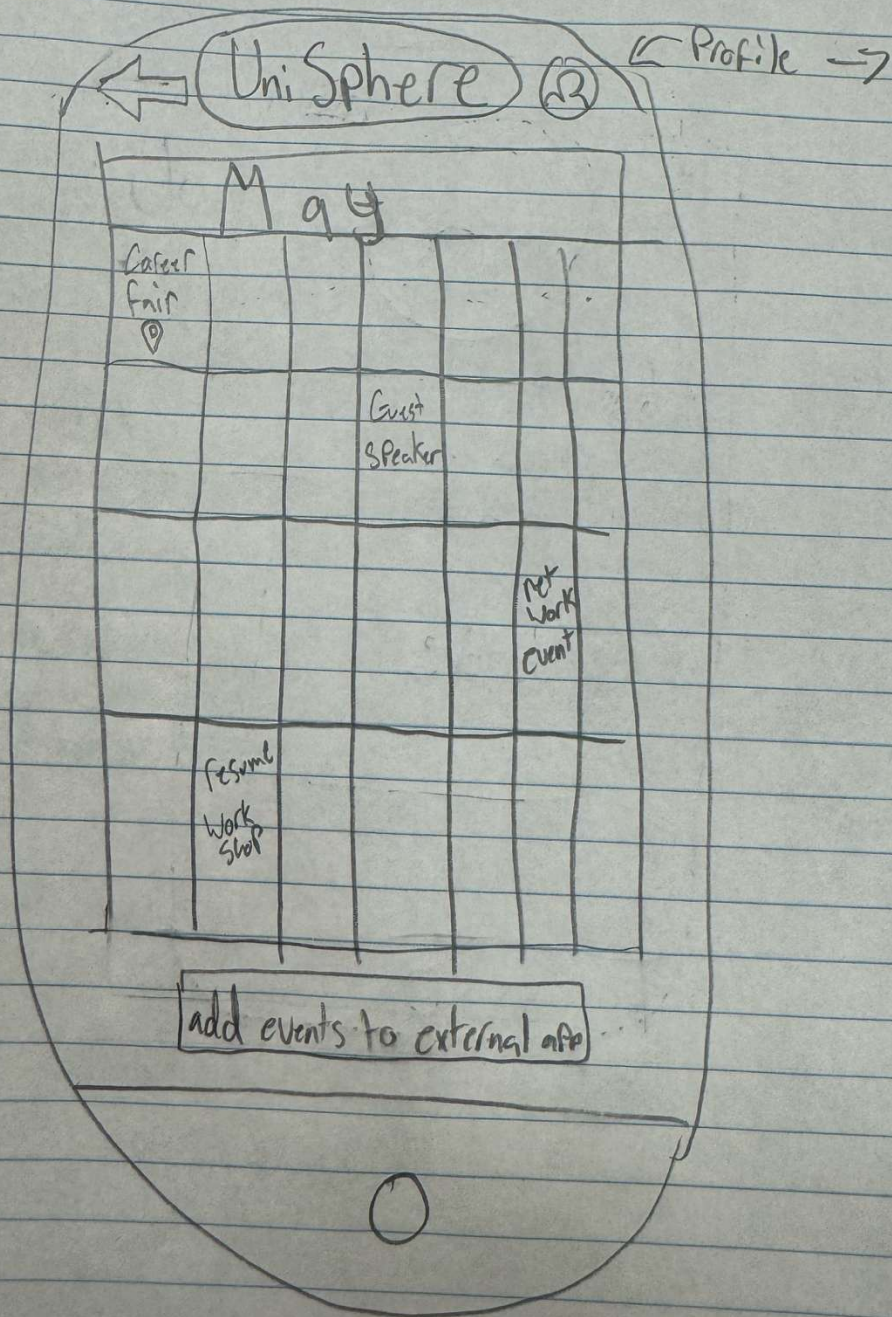 UniSphere
Profile
May
Career
Fair
Guest
Speaker
net
work
event
resume
work
shop
add events to external app